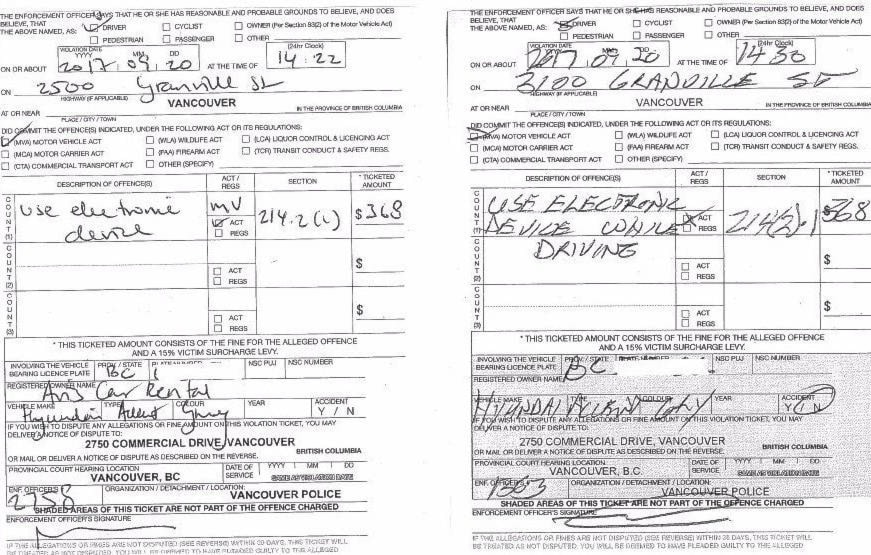 THE ENFORCEMENT OFFICER SAYS THAT HE OR SHE HAS REASONABLE AND PROBABLE GROUNDS TO BELIEVE, AND DOES
BELIEVE, THAT
THE ABOVE NAMED, AS:
DRIVER CYCLIST OWNER (Per Section 83(2) of the Motor Vehicle Act)
PEDESTRIAN PASSENGER OTHER
VIOLATION DATE
YYYY MM DD (24hr Clock)
ON OR ABOUT 2017 09 20 AT THE TIME OF 14 22
ON 2500 Granville St
HIGHWAY (IF APPLICABLE)
AT OR NEAR VANCOUVER IN THE PROVINCE OF BRITISH COLUMBIA
PLACE / CITY / TOWN
DID COMMIT THE OFFENCE(S) INDICATED, UNDER THE FOLLOWING ACT OR ITS REGULATIONS:
(MVA) MOTOR VEHICLE ACT (WLA) WILDLIFE ACT (LCA) LIQUOR CONTROL & LICENCING ACT
(MCA) MOTOR CARRIER ACT (FAA) FIREARM ACT (TCR) TRANSIT CONDUCT & SAFETY REGS.
(CTA) COMMERCIAL TRANSPORT ACT OTHER (SPECIFY)
DESCRIPTION OF OFFENCE(S) ACT / REGS SECTION * TICKETED AMOUNT
COUNT (1) use electronic device MV ACT REGS 214.2(1) $368
COUNT (2) ACT REGS $
COUNT (3) ACT REGS $
* THIS TICKETED AMOUNT CONSISTS OF THE FINE FOR THE ALLEGED OFFENCE
AND A 15% VICTIM SURCHARGE LEVY.
INVOLVING THE VEHICLE BEARING LICENCE PLATE PROV / STATE BC NSC PUJ NSC NUMBER
REGISTERED OWNER NAME
Car Rental
VEHICLE MAKE TYPE COLOUR YEAR ACCIDENT
Hyundai Accent Grey Y / N
IF YOU WISH TO DISPUTE ANY ALLEGATIONS OR FINE AMOUNT ON THIS VIOLATION TICKET, YOU MAY
DELIVER A NOTICE OF DISPUTE TO:
2750 COMMERCIAL DRIVE, VANCOUVER
BRITISH COLUMBIA
OR MAIL OR DELIVER A NOTICE OF DISPUTE AS DESCRIBED ON THE REVERSE.
PROVINCIAL COURT HEARING LOCATION DATE OF SERVICE YYYY MM DD
VANCOUVER, BC SAME AS VIOLATION DATE
ENF. OFFICER'S ORGANIZATION / DETACHMENT / LOCATION
2758 VANCOUVER POLICE
SHADED AREAS OF THIS TICKET ARE NOT PART OF THE OFFENCE CHARGED
ENFORCEMENT OFFICER'S SIGNATURE
IF THE ALLEGATIONS OR FINES ARE NOT DISPUTED (SEE REVERSE) WITHIN 30 DAYS, THIS TICKET WILL
BE TREATED AS NOT DISPUTED, YOU WILL BE DEEMED TO HAVE PLEADED GUILTY TO THE ALLEGED
THE ENFORCEMENT OFFICER SAYS THAT HE OR SHE HAS REASONABLE AND PROBABLE GROUNDS TO BELIEVE, AND DOES
BELIEVE, THAT
THE ABOVE NAMED, AS:
DRIVER CYCLIST OWNER (Per Section 83(2) of the Motor Vehicle Act)
PEDESTRIAN PASSENGER OTHER
VIOLATION DATE
YYYY DD (24hr Clock)
ON OR ABOUT 2017 09 20 AT THE TIME OF 14 30
ON 3100 GRANVILLE ST
HIGHWAY (IF APPLICABLE)
AT OR NEAR VANCOUVER IN THE PROVINCE OF BRITISH COLUMBIA
PLACE / CITY / TOWN
DID COMMIT THE OFFENCE(S) INDICATED, UNDER THE FOLLOWING ACT OR ITS REGULATIONS:
(MVA) MOTOR VEHICLE ACT (WLA) WILDLIFE ACT (LCA) LIQUOR CONTROL & LICENCING ACT
(MCA) MOTOR CARRIER ACT (FAA) FIREARM ACT (TCR) TRANSIT CONDUCT & SAFETY REGS.
(CTA) COMMERCIAL TRANSPORT ACT OTHER (SPECIFY)
DESCRIPTION OF OFFENCE(S) ACT / REGS SECTION * TICKETED AMOUNT
COUNT (1) USE ELECTRONIC DEVICE WHILE DRIVING ACT REGS 214(2).1 $368
COUNT (2) ACT REGS $
COUNT (3) ACT REGS $
* THIS TICKETED AMOUNT CONSISTS OF THE FINE FOR THE ALLEGED OFFENCE
AND A 15% VICTIM SURCHARGE LEVY.
INVOLVING THE VEHICLE BEARING LICENCE PLATE PROV / STATE BC NSC PUJ NSC NUMBER
REGISTERED OWNER NAME
VEHICLE MAKE TYPE COLOUR YEAR ACCIDENT
HYUNDAI ACCENT GREY Y / N
IF YOU WISH TO DISPUTE ANY ALLEGATIONS OR FINE AMOUNT ON THIS VIOLATION TICKET, YOU MAY
DELIVER A NOTICE OF DISPUTE TO:
2750 COMMERCIAL DRIVE, VANCOUVER
BRITISH COLUMBIA
OR MAIL OR DELIVER A NOTICE OF DISPUTE AS DESCRIBED ON THE REVERSE.
PROVINCIAL COURT HEARING LOCATION DATE OF SERVICE YYYY MM DD
VANCOUVER, B.C. SAME AS VIOLATION DATE
ENF. OFFICER'S ORGANIZATION / DETACHMENT / LOCATION
VANCOUVER POLICE
SHADED AREAS OF THIS TICKET ARE NOT PART OF THE OFFENCE CHARGED
ENFORCEMENT OFFICER'S SIGNATURE
IF THE ALLEGATIONS OR FINES ARE NOT DISPUTED (SEE REVERSE) WITHIN 30 DAYS, THIS TICKET WILL
BE TREATED AS NOT DISPUTED, YOU WILL BE DEEMED TO HAVE PLEADED GUILTY TO THE ALLEGED